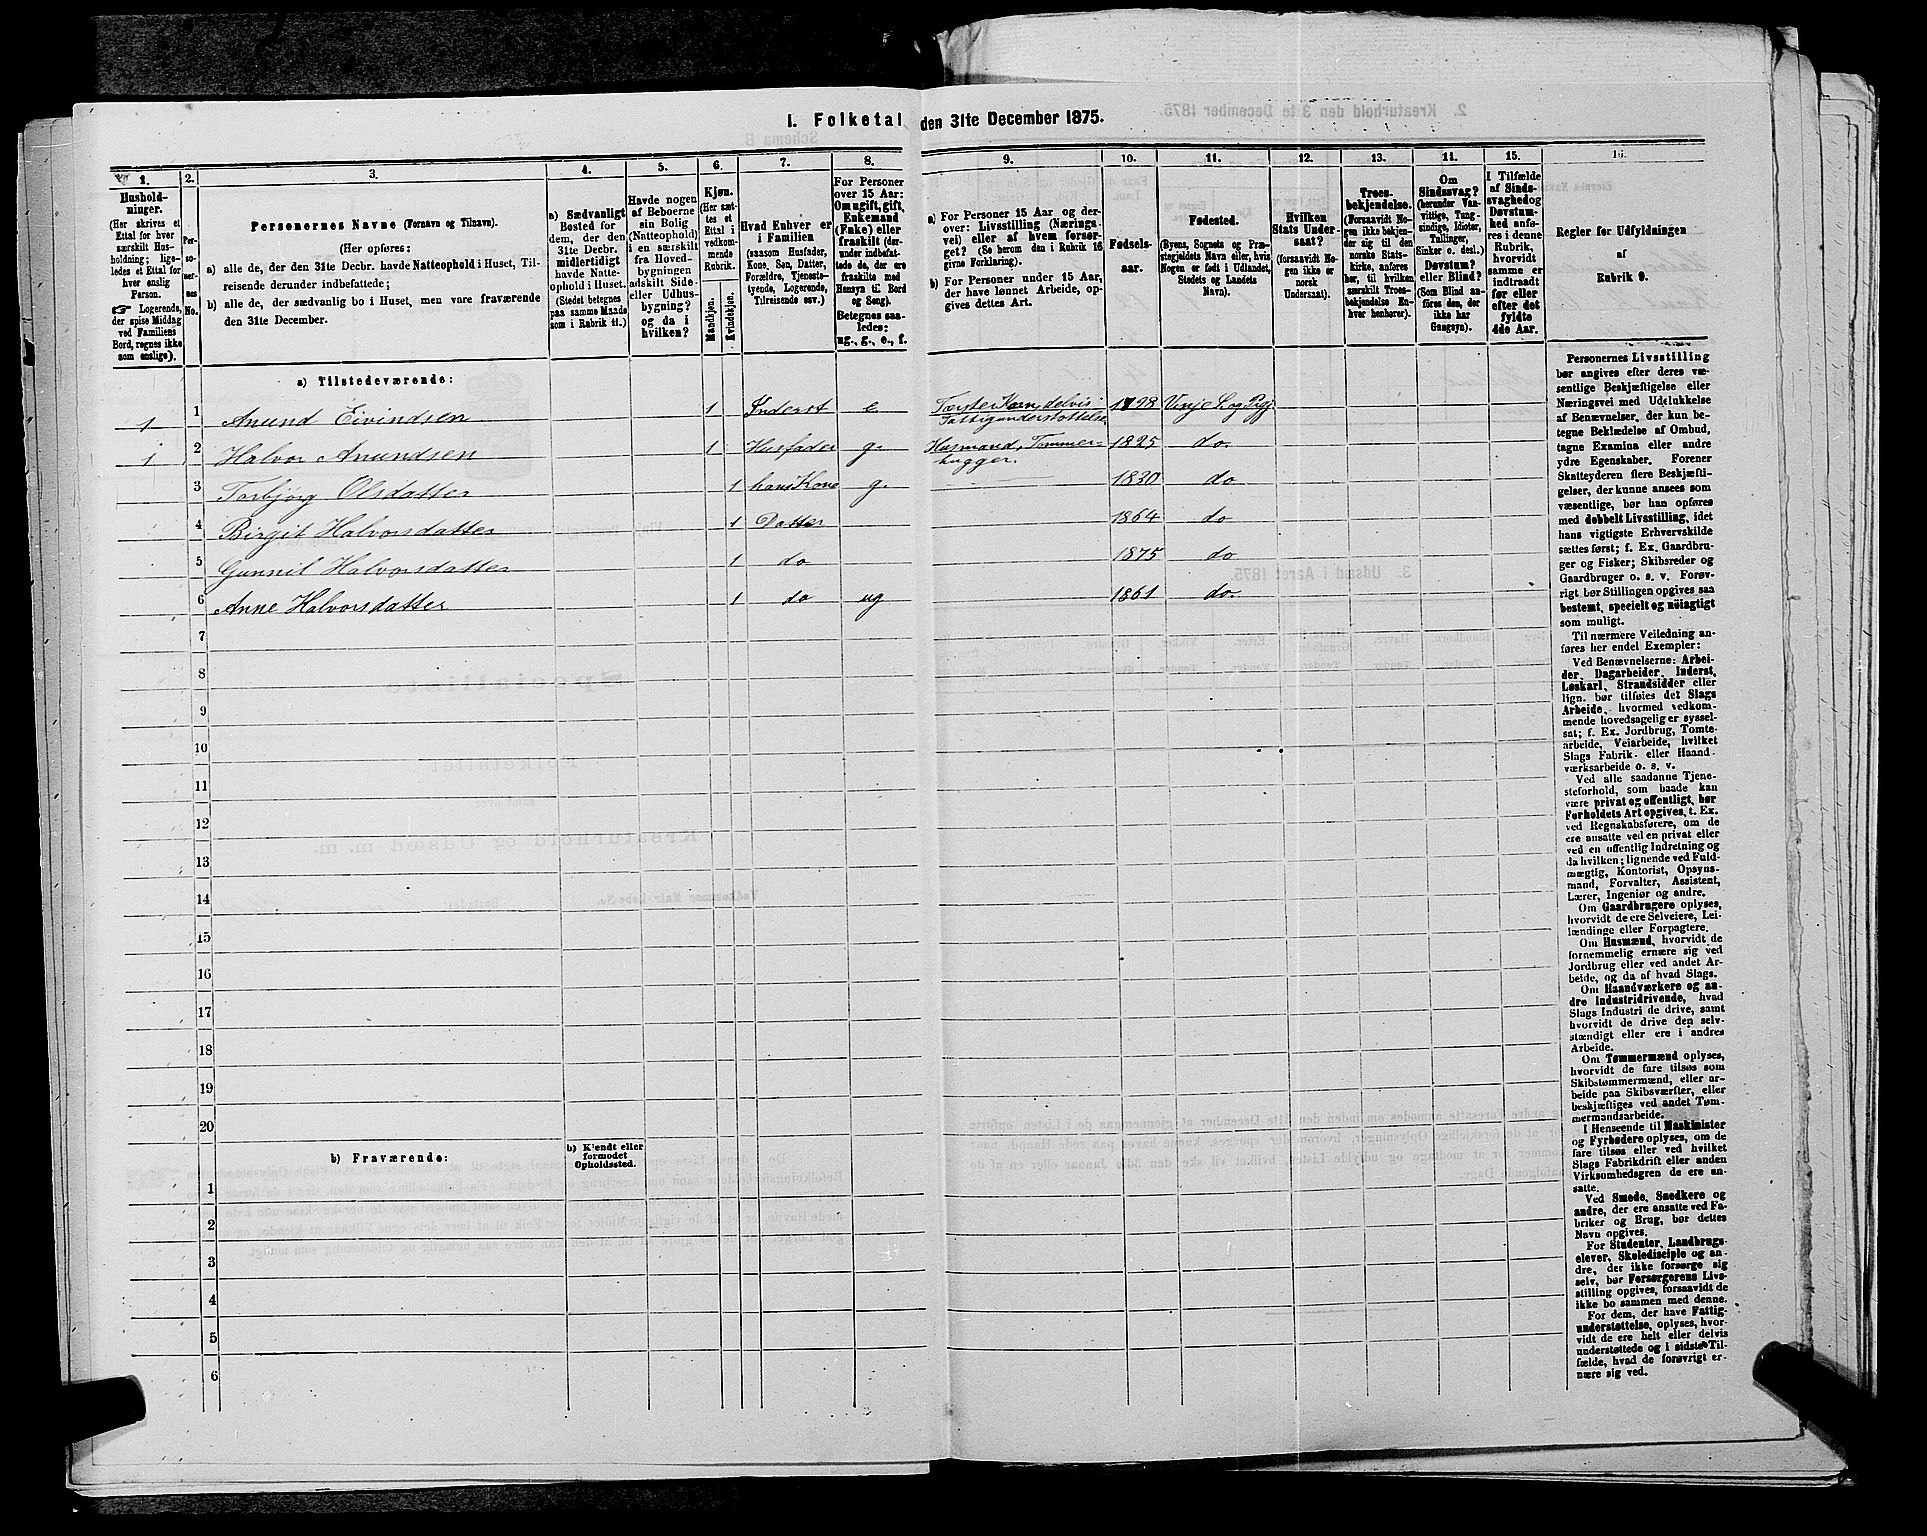 I. Folketal den 31te December 1875.
1. 2. 3. 4. 5. 6. 7. 8. 9. 10. 11. 12. 13. 14. 15. 16.
Hushold-
ninger.
(Her skrives et
Ettal for hver
særskilt Hus-
holdning; lige-
ledes et Ettal for
hver enslig
Person.
☞ Logerende,
der spise Middag
ved Familiens
Bord, regnes ikke
som enslige).
Per-
so-
ner-
nes
No.
Personernes Navne (Fornavn og Tilnavn).
(Her opføres:
a) alle de, der den 31te Decbr. havde Natteophold i Huset, Til-
reisende derunder indbefattede;
b) alle de, der sædvanlig bo i Huset, men vare fraværende
den 31te December.
a) Sædvanligt
Bosted for
dem, der den
31te Decbr.
midlertidigt
havde Natte-
ophold i Huset.
(Stedet betegnes
paa samme Maade
som i Rubrik 11.)
Havde nogen
af Beboerne
sin Bolig
(Natteophold)
i en særskilt
fra Hoved-
bygningen
adskilt Side-
eller Udhus-
bygning?
og da i
hvilken?
Kjøn.
(Her sæt-
tes et
Ettal i
vedkom-
mende
Rubrik.
Mandkjøn.
Kvindekjøn.
Hvad Enhver er
i Familien
(saasom Husfader,
Kone, Søn, Datter,
Forældre, Tjenestе-
tyende, Logerende,
Tilreisende osv.)
For Personer
over 15 Aar:
Om ugift, gift,
Enkemand
(Enke) eller
fraskilt (der-
indbefat-
tede de, der ere
fraskilte med
Hensyn til Bord
og Seng).
Betegnes saa-
ledes:
ug., g., e., f.
a) For Personer 15 Aar og der-
over: Livsstilling (Nærings-
vei) eller af hvem forsør-
get? (Se herom den i Rubrik 16
givne Forklaring).
b) For Personer under 15 Aar,
der have lønnet Arbeide, op-
gives dettes Art.
Fødsels-
aar.
Fødested.
(Byens, Sognets og Præ-
stegjeldets Navn eller, hvis
Nogen er født i Udlandet,
Stedets og Landets
Navn).
Hvilken
Stats Under-
saat?
(forsaavidt No-
gen ikke er
norsk
Undersaat).
Troes-
bekjendelse.
(Forsaavidt No-
gen ikke bekjen-
der sig til den
norske Stats-
kirke, anføres
her, til hvilken
særskilt Troes-
bekjendelse En-
hver henhører).
Om
Sindssvag?
(herunder Van-
vittige, Tung-
sindige, Idioter,
Tullinger,
Sinker o. desl.)
Døvstum?
eller Blind?
(Som Blind an-
føres den, der
ikke har
Gangsyn).
I Tilfælde
af Sinds-
svaghed og
Døvstum-
hed anfø-
res i denne
Rubrik,
hvorvidt
samme er
indtraadt
før eller
efter det
fyldte
4de Aar.
Regler for Udfyldningen
af
Rubrik 9.
a) Tilstedeværende:
1 1 Anund Eivindsen 1 Inderst e 1798 Vinje S. og Pgj.
Fattigunderstøttelse
1 2 Halvor Anundsen 1 Husfader g. Husmand, Tømmer- 1825 do.
hugger.
3 Torbjörg Olsdatter 1 hans Kone g. 1830 do
4 Birgit Halvorsdatter 1 Datter 1864 do
5 Gunnil Halvorsdatter 1 do 1875 do
6 Anne Halvorsdatter 1 do ug 1861 do.
7
8
9
10
11
12
13
14
15
16
17
18
19
20
b) Fraværende:
b) Kjendt eller
formodet
Opholdssted.
1
2
3
4
5
6
Personernes Livsstilling
bør angives efter deres væ-
sentlige Beskjæftigelse eller
Næringsvei med Udelukkelse
af Benævnelser, der kun be-
tegne Beklædelse af Ombud,
tagne Examina eller andre
ydre Egenskaber. Forener
Skatteyderen flere Beskjæfti-
gelser, der kunne ansees som
væsentlige, bør han opføres
med dobbelt Livsstilling, idet
hans vigtigste Erhvervskilde
sættes først; f. Ex. Gaardbru-
ger og Fisker; Skibsreder og
Gaardbruger o. s. v. Forøv-
rigt bør Stillingen opgives saa
bestemt, specielt og nöiagtigt
som muligt.
Til nærmere Veiledning an-
føres her endel Exempler:
Ved Benævnelserne: Arbei-
der, Dagarbeider, Inderst,
Løskarl, Strandsidder eller
lign. bør tilføies det Slags
Arbeide, hvormed vedkom-
mende hovedsagelig er syssel-
sat; f. Ex. Jordbrug, Tomte-
arbeide, Veiarbeide, hvilket
Slags Fabrik- eller Haand-
værksarbeide o. s. v.
Ved alle saadanne Tjene-
steforhold, som baade kan
være privat og offentligt, bør
Forholdets Art opgives, t. Ex.
ved Regnskabsførere, om de
ere ansatte ved en privat eller
ved en offentlig Indretning og
da hvilken; lignende ved Fuld-
mægtig, Kontorist, Opsyns-
mand, Forvalter, Assistent,
Lærer, Ingeniør og andre.
Om Gaardbrugere oplyses,
hvorvidt de ere Selveiere, Lei-
lændinge eller Forpagtere.
Om Husmænd, hvorvidt de
fornemmelig ernære sig ved
Jordbrug eller ved andet Ar-
beide, og da af hvad Slags.
Om Haandværkere og an-
dre Industridrivende, hvad
Slags Industri de drive, samt
hvorvidt de drive den selv-
stændigt eller ere i andres
Arbeide.
Om Tømmermænd oplyses,
hvorvidt de fare tilsøs som
Skibstømmermænd, eller ar-
beide paa Skibsværfter, eller
beskjæftiges ved andet Tøm-
mermandsarbeide.
I Henseende til Maskinister
og Fyrbødere oplyses, om de
fare tilsøs eller ved hvilket
Slags Fabrikdrift eller anden
Virksomhedsgren de ere an-
satte.
Ved Smede, Snedkere og
andre, der ere ansatte ved Fa-
briker og Brug, bør dettes
Navn opgives.
For Studenter, Landbrugs-
elever, Skoledisciple og an-
dre, der ikke forsørge sig
selv, bør Forsørgerens Livs-
stilling opgives, forsaavidt de
ikke bo sammen med denne.
For dem, der have Fattig-
understøttelse, oplyses, hvor-
vidt de ere helt eller delvis
understøttede og i sidste Til-
fælde, hvad de forøvrigt er-
nære sig ved.